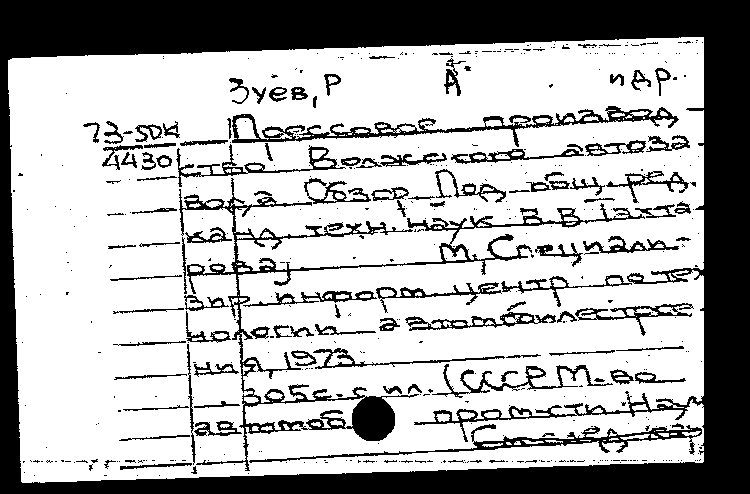 Зуев, Р А. и др.
73-5DК Прессовое производ-
4430 ство Волжского автоза-
вода Обзор Под общ. ред.
канд. техн. наук В.В. Тахта-
рова]. М., Специали-
зир. информ центр по тех
нологии автомобилестрое-
ния, 1973.
305с. с ил. (СССР М-во
автомоб пром-сти. Науч
См. след. кар